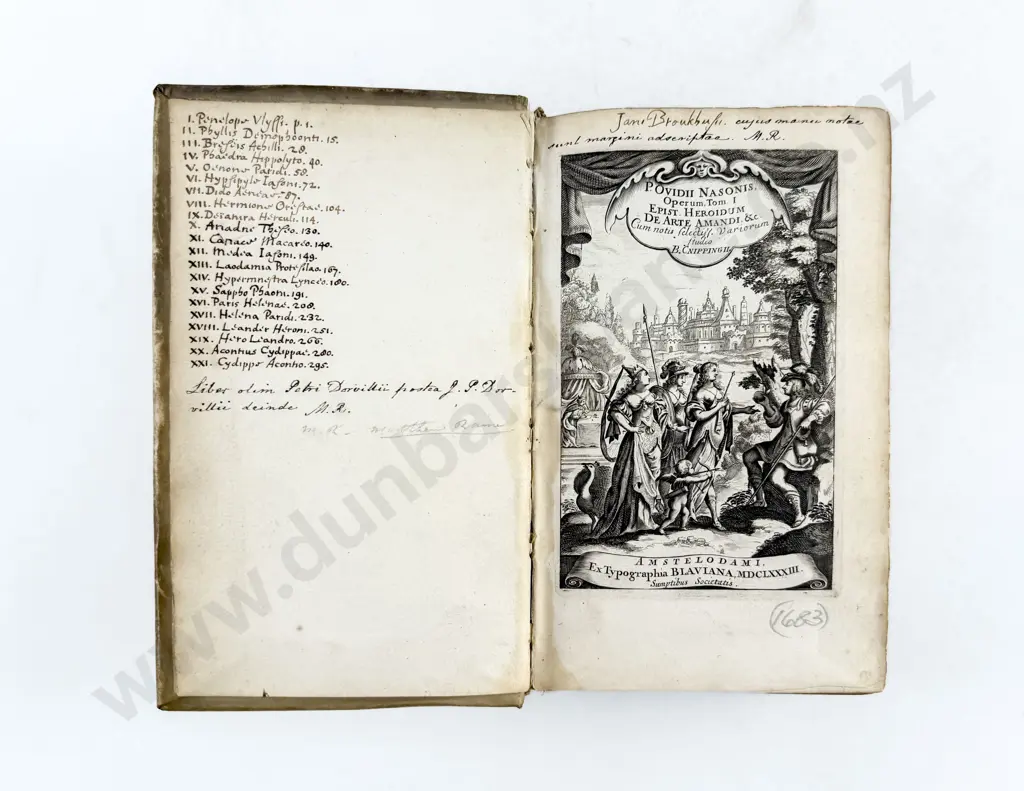 I. Penelope Vlyssi. p. 1.
II. Phyllis Demophoonti. 15.
III. Breseis Achilli. 28.
IV. Phaedra Hippolyto. 40.
V. Oenone Paridi. 58.
VI. Hypsipyle Iasoni. 72.
VII. Dido Aeneae. 87.
VIII. Hermione Orestae. 104.
IX. Deianira Herculi. 114.
X. Ariadne Theseo. 130.
XI. Canace Macareo. 140.
XII. Medea Iasoni. 149.
XIII. Laodamia Protesilao. 167.
XIV. Hypermnestra Lynceo. 180.
XV. Sappho Phaoni. 191.
XVI. Paris Helenae. 208.
XVII. Helena Paridi. 232.
XVIII. Leander Heroni. 251.
XIX. Hero Leandro. 266.
XX. Acontius Cydippae. 280.
XXI. Cydippe Acontio. 295.
Liber olim Petri Dorvillii postea J. P. Dor-
villii deinde M.R.
M. R.
Jani Broukhusii. cujus manu notae
sunt margini adscriptae. M.R.
P. OVIDII NASONIS.
Operum, Tom. I
EPIST. HEROIDUM
DE ARTE AMANDI. &c.
Cum notis selectiss. Variorum
studio
B. CNIPPINGII.
AMSTELODAMI,
Ex Typographia BLAVIANA, MDCLXXXIII.
Sumptibus Societatis.
(1683)
www.dunbarsloane.co.nz